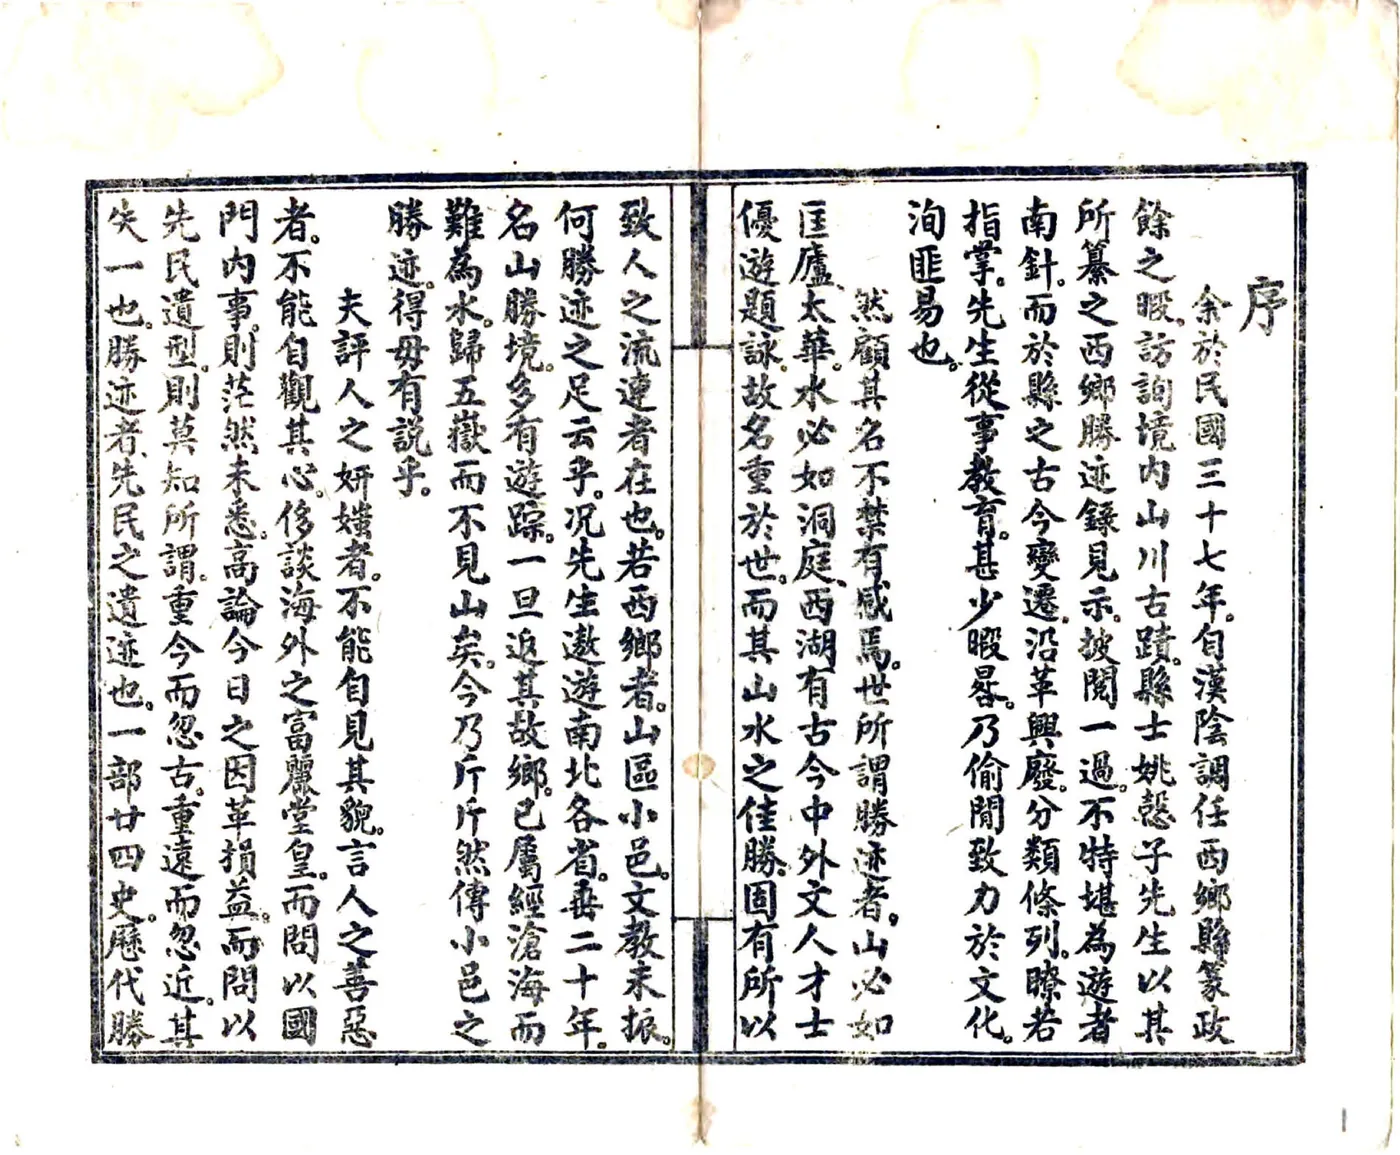 序
余於民國三十七年。自漢陰調任西鄉縣篆政
餘之暇。訪詢境内山川古蹟。縣士姚慤子先生以其
所纂之西鄉勝迹錄見示。披閱一過。不特堪為遊者
南針。而於縣之古今變遷。沿革興廢。分類條列。瞭若
指掌。先生從事教育。甚少暇晷。乃偷閒致力於文化。
洵匪易也。
然顧其名不禁有感焉。世所謂勝迹者。山必如
匡廬、太華。水必如洞庭、西湖。有古今中外文人才士
優遊題詠。故名重於世。而其山水之佳勝。固有所以
致人之流連者在也。若西鄉者。山區小邑。文教未振。
何勝迹之足云乎。况先生遨遊南北各省。垂二十年。
名山勝境。多有遊踪。一旦返其故鄉。已屬經滄海而
難為水。歸五嶽而不見山矣。今乃斤斤然傳小邑之
勝迹。得毋有說乎。
夫評人之妍媸者。不能自見其貌。言人之善惡
者。不能自觀其心。侈談海外之富麗堂皇。而問以國
門内事。則茫然未悉。高論今日之因革損益。而問以
先民遺型。則莫知所謂。重今而忽古。重遠而忽近。其
失一也。勝迹者、先民之遺迹也。一部廿四史。歷代勝